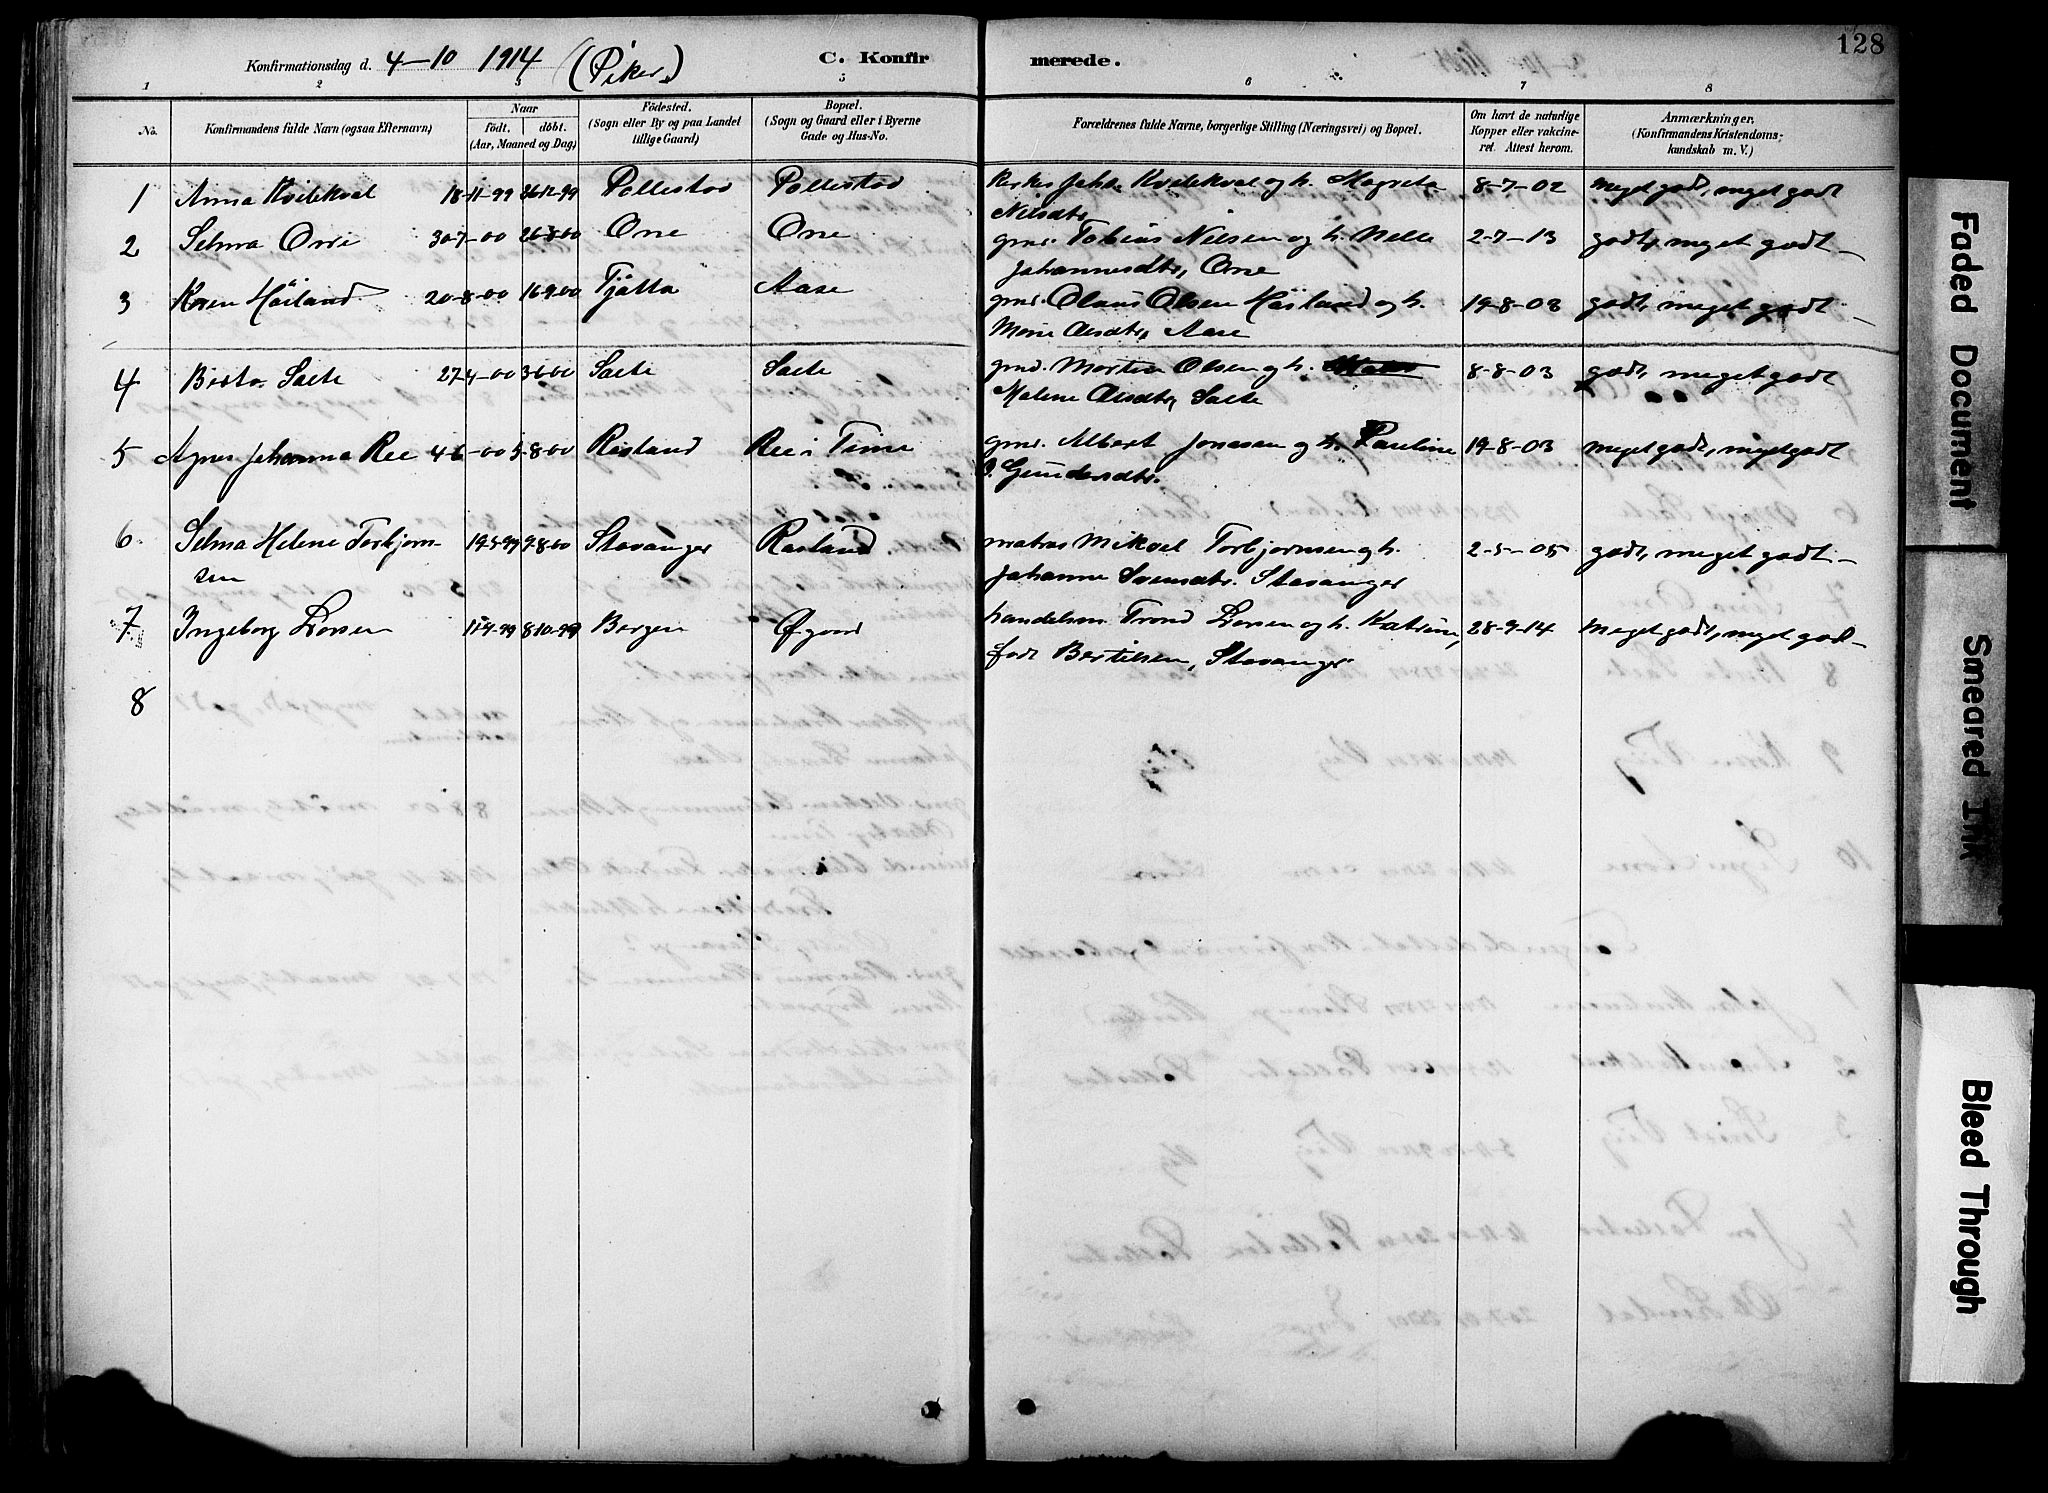 128
Konfirmationsdag d. 4-10 1914 (Piker.) C. Konfirmerede.
1 2 3 5 6 7 8
No. Konfirmandens fulde Navn (ogsaa Efternavn) Naar födt. döbt. (Aar, Maaned og Dag) Födested. (Sogn eller By og paa Landet tillige Gaard) Bopæl. (Sogn og Gaard eller i Byerne Gade og Hus-No. Forældrenes fulde Navne, borgerlige Stilling (Næringsvei) og Bopæl. Om havt de naturlige Kopper eller vakcineret. Attest herom. Anmærkninger. (Konfirmandens Kristendomskundskab m. V.)
1 Anna Kvilekval 18-11-99 26-12-99 Pollestad Pollestad Joh. Kvilekval og h. Magreta 8-7-02 meget godt, meget godt
Nilsdtr.
2 Selma Orre 30-7-00 26-8-00 Orre Orre gmr. Tobias Nilsen og h. Nelle 2-7-13 godt, meget godt
Johannesdtr, Orre
3 Karen Höiland 20-8-00 16-9-00 Tjøtta Aase gmr. Olaus Olsen Høiland og h. 19-8-03 godt, meget godt
Marie Olsdtr, Aase
4 Berta Salte 27-4-00 3-6-00 Salte Salte gmd. Morten Olsen og h. 8-8-03 godt, meget godt
Malene Olsdtr, Salte
5 Agnes Johanna Ree 4-6-00 5-8-00 Rosland Ree i Time gmr. Albert Jonassen og h. Pauline 19-8-03 meget godt, meget godt
Gundersdtr.
6 Selma Helene Torbjörnsen 19-5-99 9-8-00 Stavanger Rosland matros Mikal Torbjörnsen og h. 2-5-05 godt, meget godt
Johanne Svendsdtr. Stavanger
7 Ingeborg Larsen 11-9-99 8-10-99 Bergen Øgard handelsm. Trond Larsen og h. Katrine, 28-9-14 meget godt, meget godt
født Bertilsen, Stavanger
8
Faded Document
Smeared Ink
Bleed Through